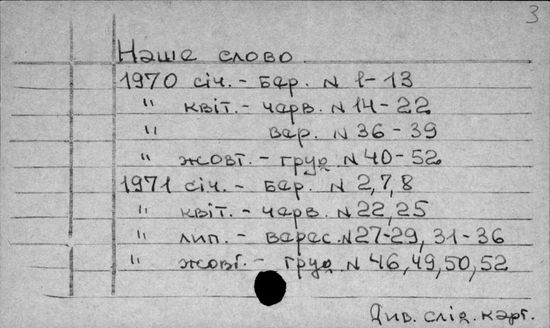 3
Наше слово
1970 січ. - бер. N 1-13
" квіт. - черв. N 14-22
" вер. N 36-39
" жовт. - груд N 40-52
1971 січ. - бер. N 2,7,8
" квіт. - черв. N 22,25
" лип. - верес. N 27-29, 31-36
" жовт. - груд N 46,49,50,52
Див. слід. карт.